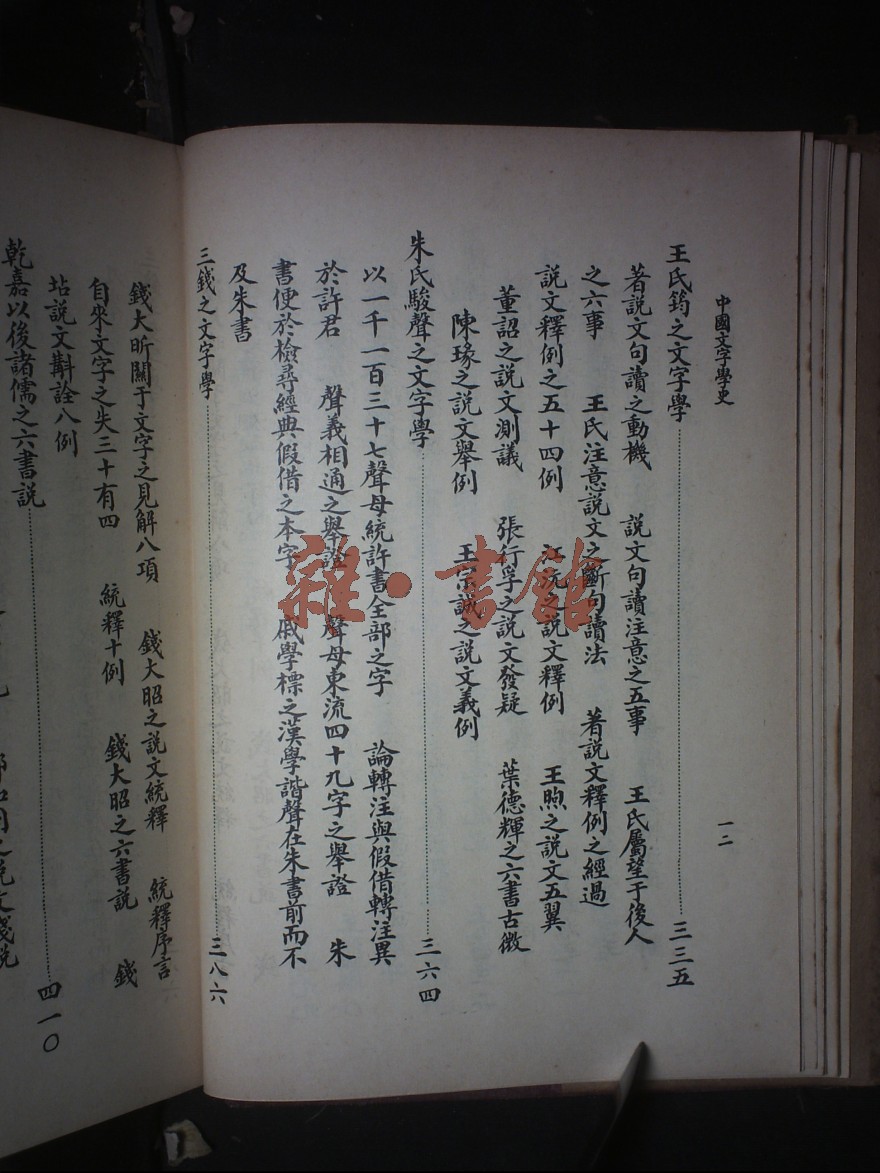 中國文字學史
一二
王氏筠之文字學 三三五
著說文句讀之動機 說文句讀注意之五事 王氏屬望于後人
之六事 王氏注意說文之斷句讀法 著說文釋例之經過
說文釋例之五十四例 江沅之說文釋例 王煦之說文五翼
董詔之說文測議 張行孚之說文發疑 葉德輝之六書古微
陳瑑之說文舉例 王宗誠之說文義例
朱氏駿聲之文字學 三六四
以一千一百三十七聲母統許書全部之字 論轉注與假借轉注異
於許君 聲義相通之舉證 聲母東流四十九字之舉證 朱
書便於檢尋經典假借之本字 戚學標之漢學諧聲在朱書前而不
及朱書
三錢之文字學 三八六
錢大昕關于文字之見解八項 錢大昭之說文統釋 統釋序言
自來文字之失三十有四 統釋十例 錢大昭之六書說 錢
坫說文斠詮八例
乾嘉以後諸儒之六書說 四一〇
雜·書館